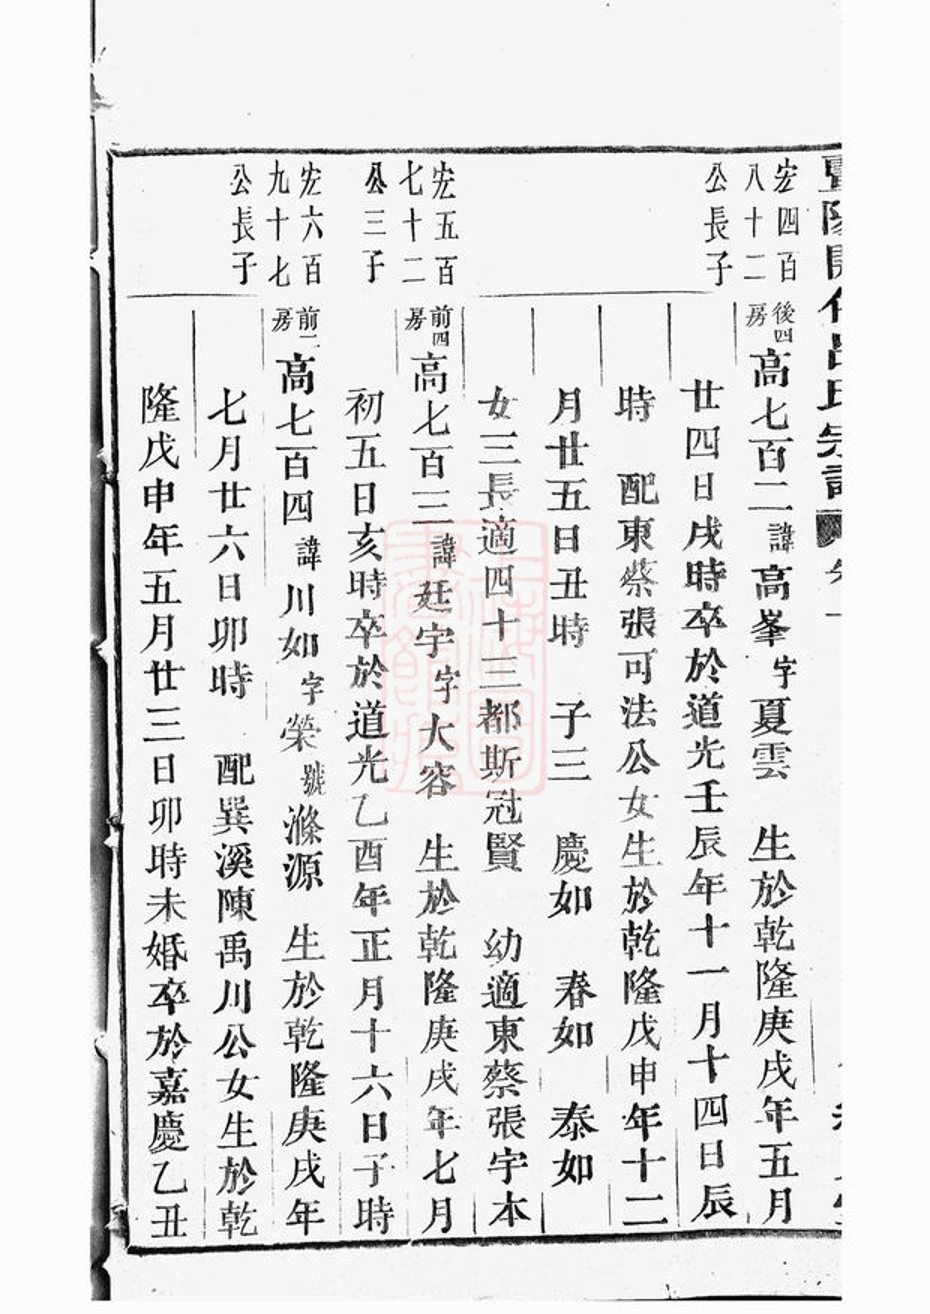 宏四百
八十二
公長子
後四
房
高七百二諱高峯字夏雲 生於乾隆庚戌年五月
廿四日戌時卒於道光壬辰年十一月十四日辰
時 配東蔡張可法公女生於乾隆戊申年十二
月廿五日丑時 子三 慶如 春如 泰如
女三長適四十三都斯冠賢 幼適東蔡張宇本
宏五百
七十二
公三子
前四
房
高七百三諱廷宇字大容 生於乾隆庚戌年七月
初五日亥時卒於道光乙酉年正月十六日子時
宏六百
九十七
公長子
前一
房
高七百四諱川如字榮號滌源 生於乾隆庚戌年
七月廿六日卯時 配巽溪陳禹川公女生於乾
隆戊申年五月廿三日卯時未婚卒於嘉慶乙丑